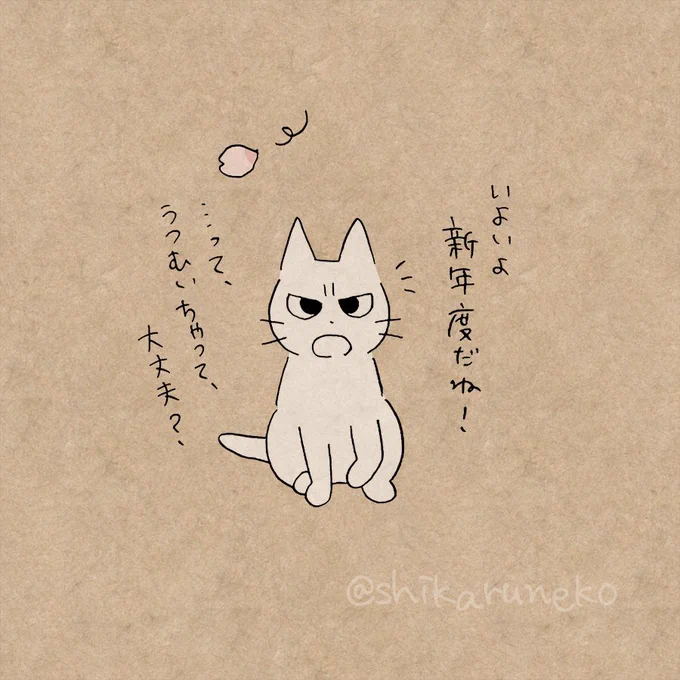 いよいよ
新年度だね!
…って、
うつむいちゃって、
大丈夫?、
@shikaruneko